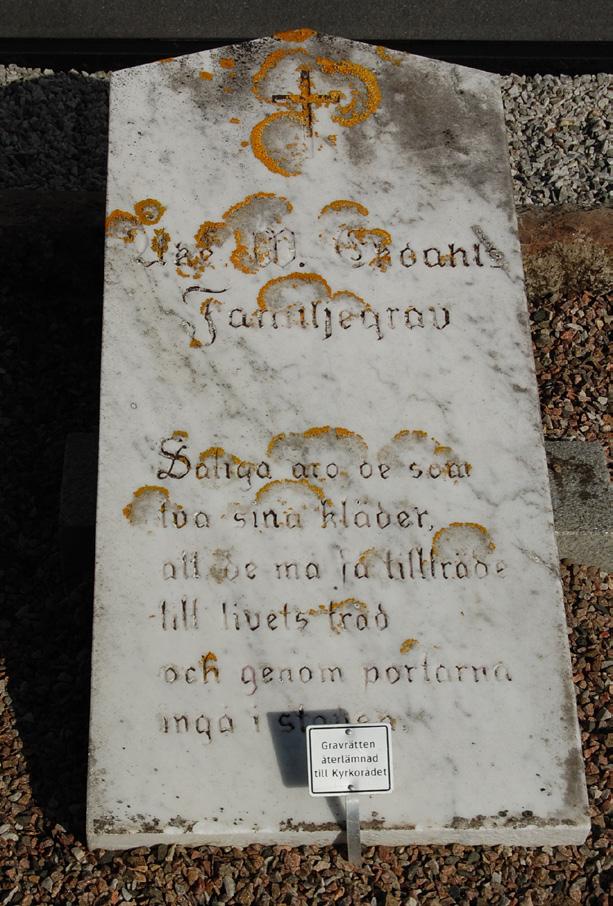 Familjegrav
Saliga äro de som
två sina kläder,
att de må få tillträde
till livets träd
och genom portarna
ingå i staden.
Gravrätten
återlämnad
till Kyrkorådet